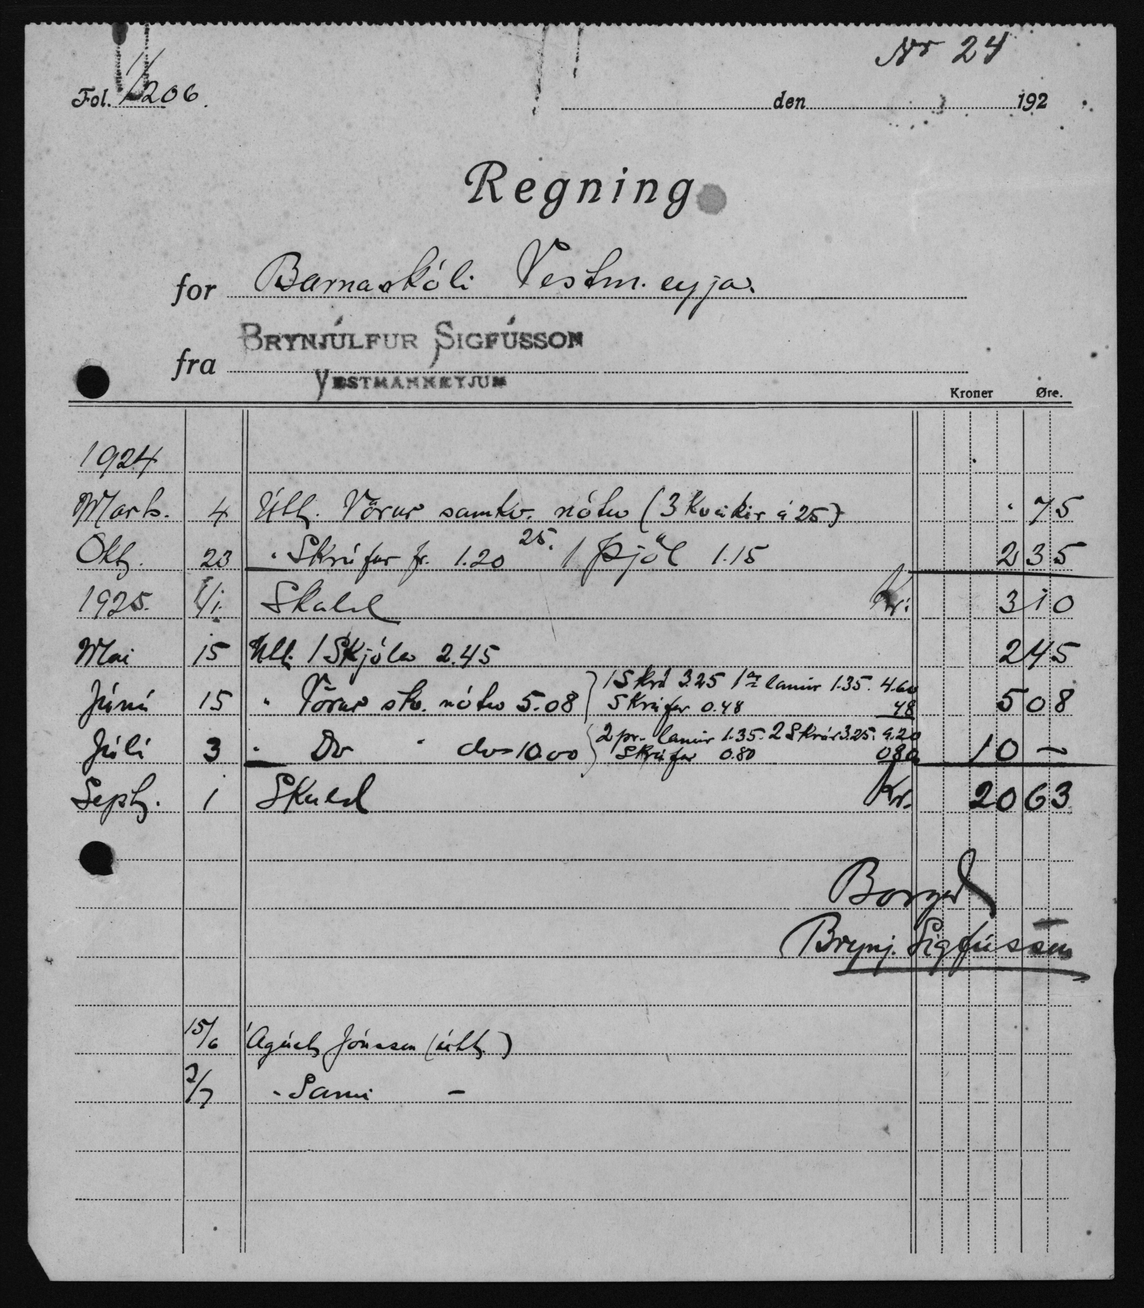 Nr 24
Fol. 1/206.
den 192
Regning
for Barnaskóli Vestm.eyja.
BRYNJÚLFUR SIGFÚSSON
fra
VESTMANNEYJUM
Kroner Øre.
1924
Marts. 4 Útt. Vörur samkv. nótu (3 Kvikir á 25) . 75
Okt. 23 " Skrúfur fr. 1.20 25. 1 þjöl 1.15 2 35
1925. 1/1. Skuld Kr: 3 10
Mai 15 Útt. 1 Skjóla 2.45 2 45
Júní 15 " Vörur sk. nótu 5.08 } 1 Skrá 3.25 1 pr lamir 1.35. 4.60 5 08
Skrúfur 0.48 48
Júlí 3 " Do " do 10.00 } 2 pr. lamir 1.35. 2 Skrár 3.25. 9.20 10 —
Skrúfur 0.80 080
Sept. 1 Skuld Kr. 20 63
Borgað
Brynj. Sigfússon
15/6 Ágúst Jónsson (útt.)
3/7 " Sami —